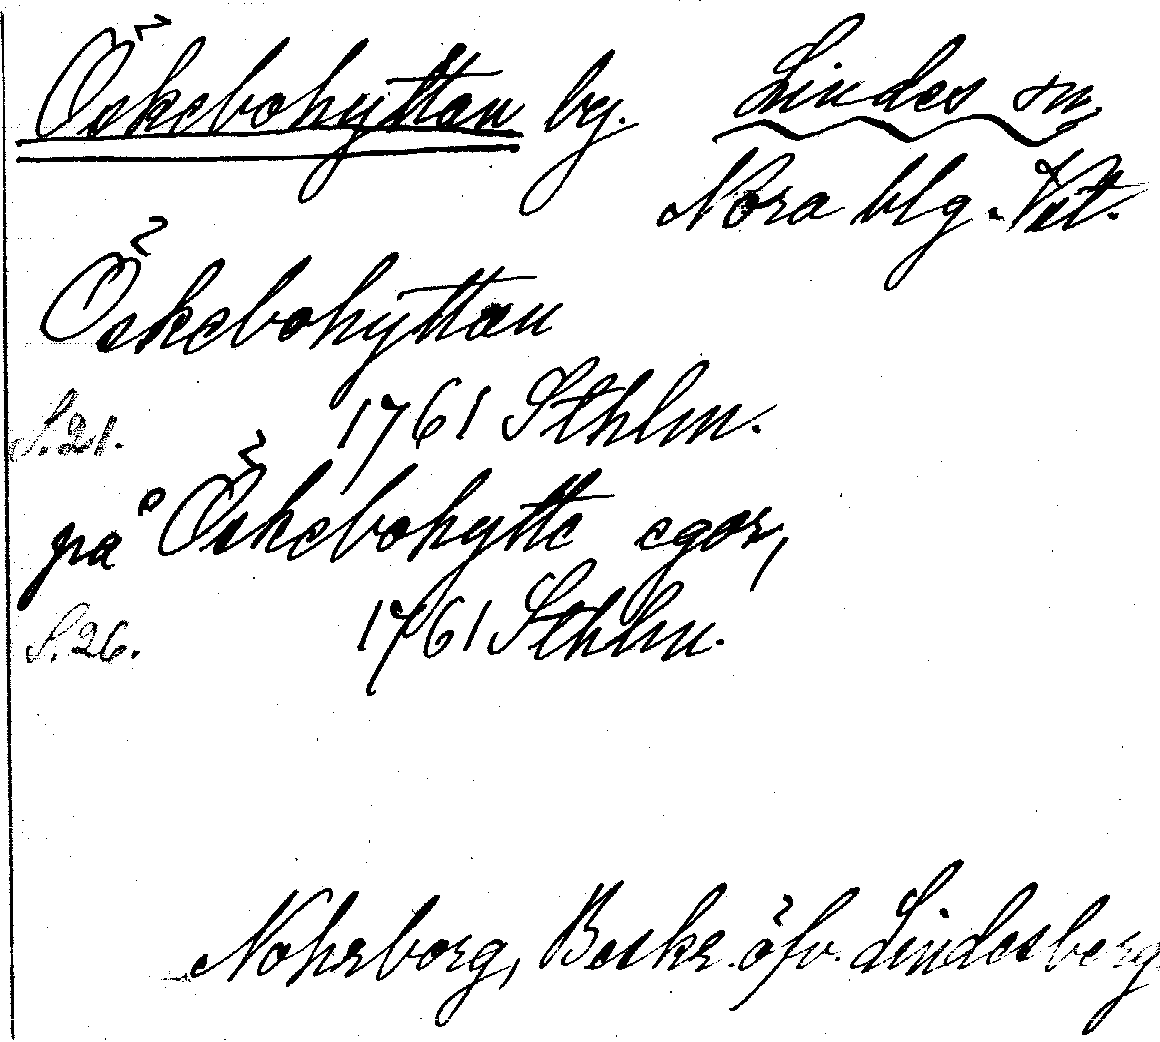 Öskebohyttan by. Lindes sn,
Nora blg. Vst.
Öskebohyttan
S. 21. 1761 Sthlm.
på Öskebohytte egor,
S. 26. 1761 Sthlm.
Nohrborg, Beskr. öfv. Lindesberg